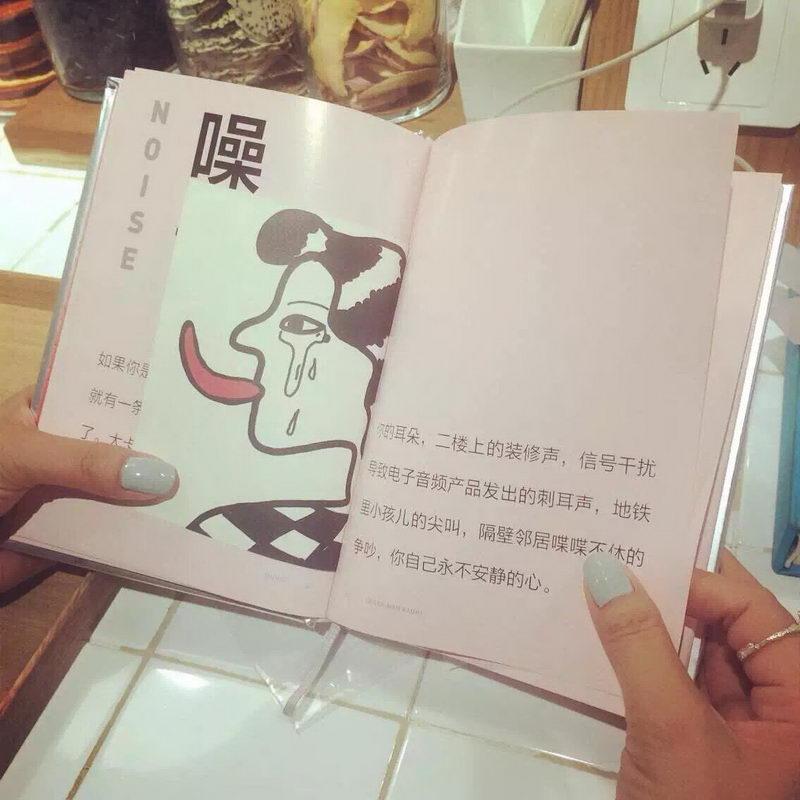 NOISE
噪
如果你是
就有一条
了。大卡
你的耳朵，二楼上的装修声，信号干扰
导致电子音频产品发出的刺耳声，地铁
里小孩儿的尖叫，隔壁邻居喋喋不休的
争吵，你自己永不安静的心。